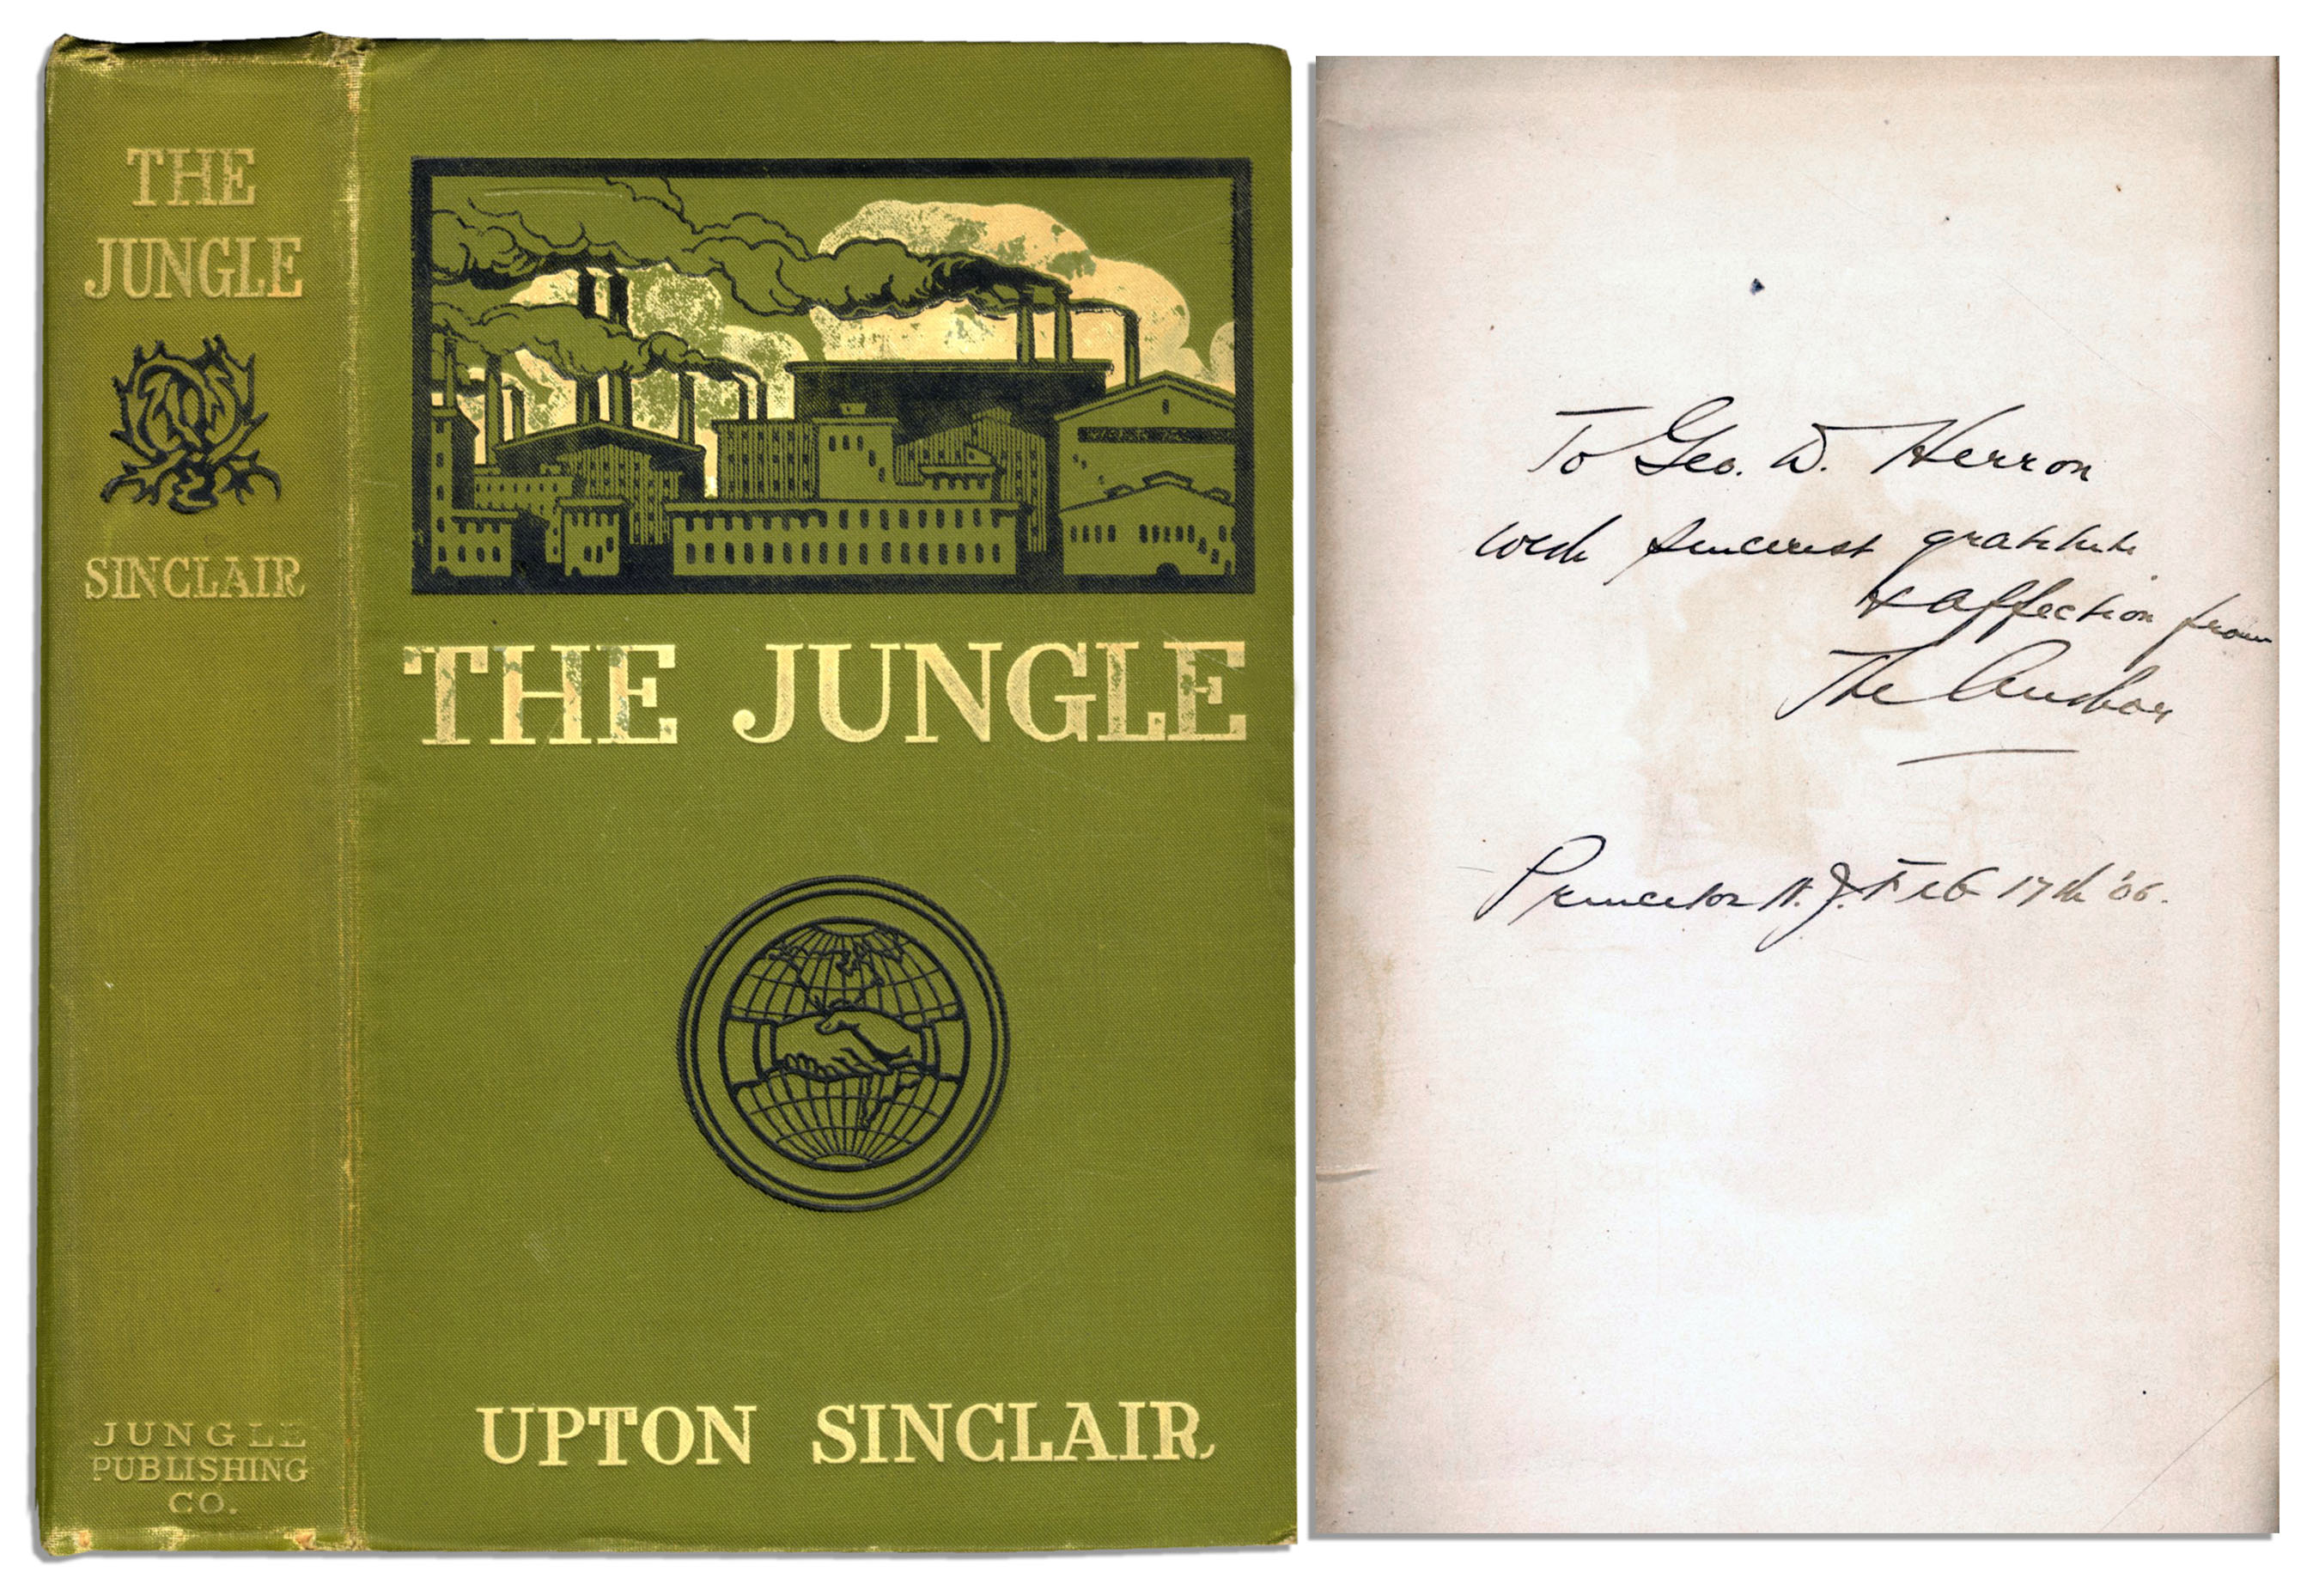 THE
JUNGLE
SINCLAIR
JUNGLE
PUBLISHING
CO.
THE JUNGLE
UPTON SINCLAIR
To Geo. D. Herron
with sincerest gratitude
& affection from
The Author
Princeton N.J. Feb 17th '06.